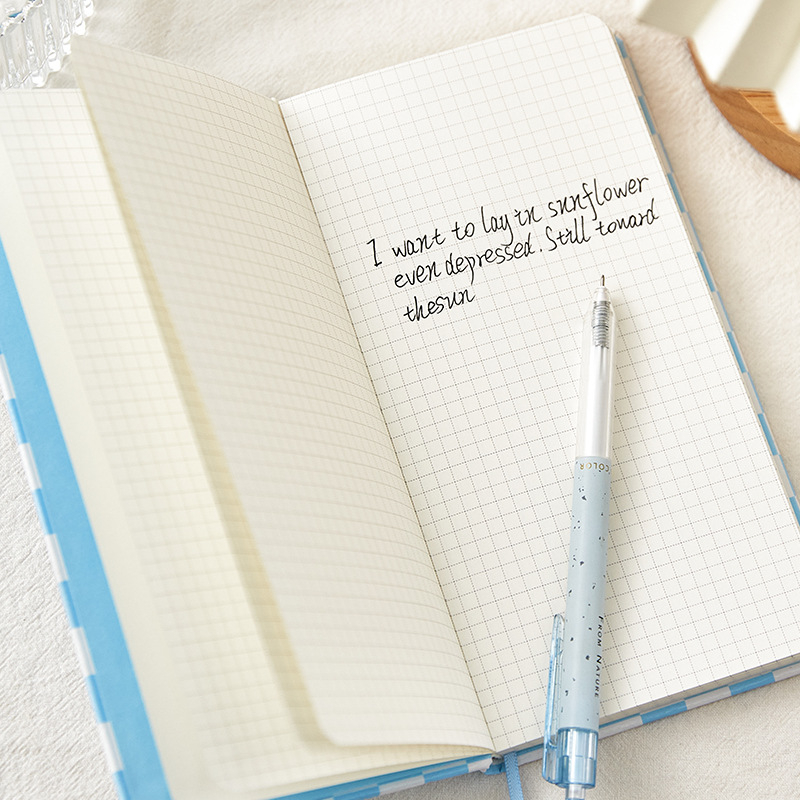 I want to lay in sunflower
even depressed. Still toward
thesun
COLOR
FROM NATURE